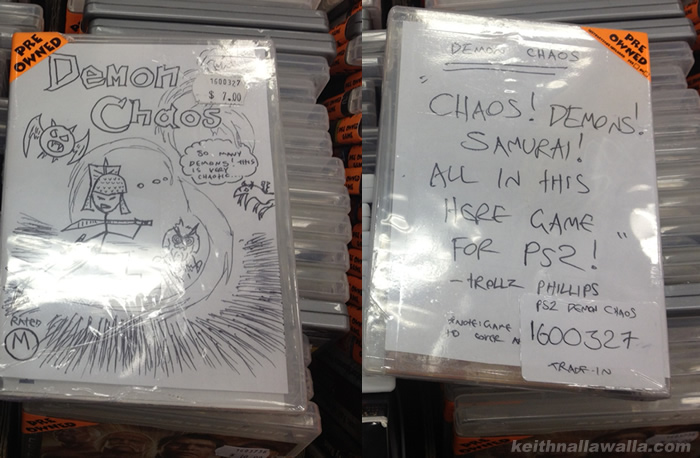 PRE
OWNED
Demon
Chaos
1600327
$ 7.00
SO MANY
DEMONS! THIS
IS VERY
CHAOTIC.
RATED
M
PRE
OWNED
DEMON CHAOS
"CHAOS! DEMONS!
SAMURAI!
ALL IN THIS
HERE GAME
FOR PS2!"
- TROLLZ PHILLIPS
PS2 DEMON CHAOS
1600327
TRADE-IN
GAME
COVER
PRE
OWNED
keithnallawalla.com